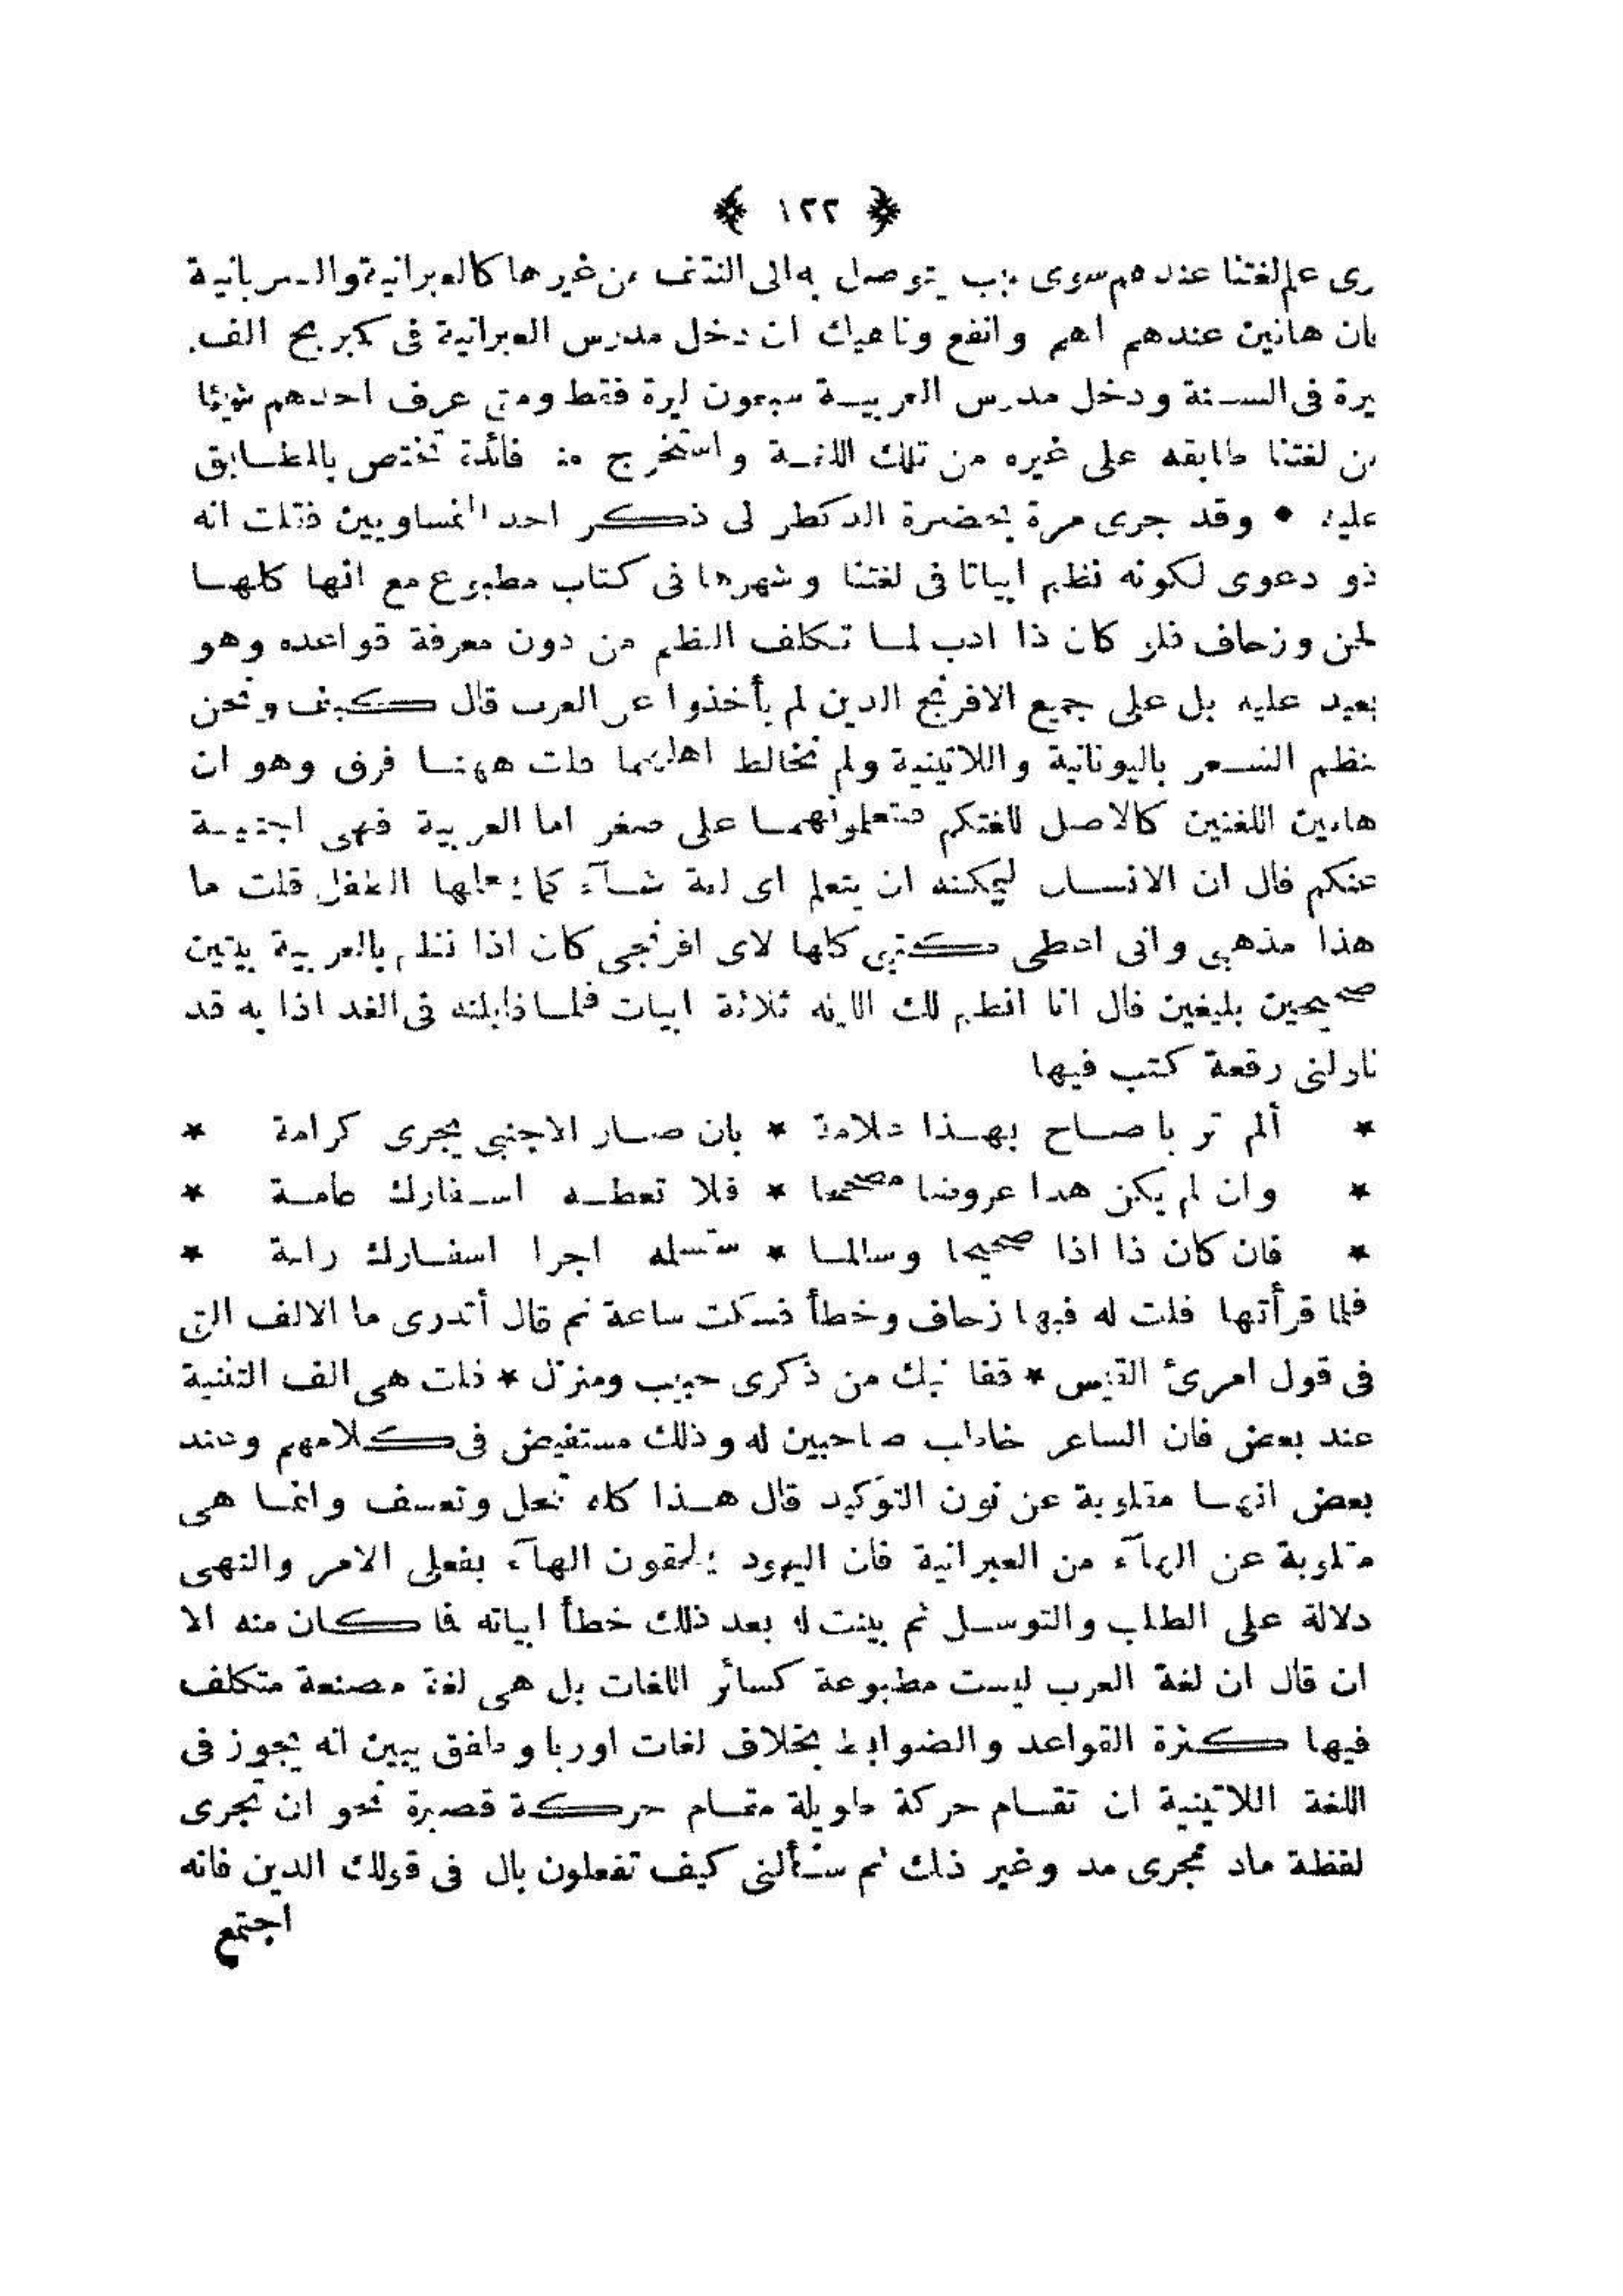 ﴿ ١٢٢ ﴾
رى علم لغتنا عندهم سوى سبب يتوصل به الى النتف من غيرها كالعبرانية والسريانية
فان هاتين عندهم اهم وانفع وناهيك ان دخل مدرس العبرانية فى كمبريج الف
يرة فى السنة ودخل مدرس العربية سبعون ليرة فقط ومتى عرف احدهم شيئا
من لغتنا طابقه على غيره من تلك اللغة واستخرج منه فائدة تختص بالمطابق
عليه • وقد جرى مرة بحضرة الدكطر لى ذكر احد النمساويين فقلت انه
ذو دعوى لكونه نظم ابياتا فى لغتنا وشهرها فى كتاب مطبوع مع انها كلها
لحن وزحاف فلو كان ذا ادب لما تكلف النظم من دون معرفة قواعده وهو
بعيد عليه بل على جميع الافرنج الذين لم يأخذوا عن العرب قال كيف ونحن
ننظم الشعر باليونانية واللاتينية ولم نخالط اهليهما قلت ههنا فرق وهو ان
هاتين اللغتين كالاصل للغتكم فتتعلمونهما على صغر اما العربية فهى اجنبية
عنكم قال ان الانسان ليمكنه ان يتعلم اى لغة شآء كما يتعلمها الطفل قلت ما
هذا مذهبى وانى اعطى كتبى كلها لاى افرنجى كان اذا نظم بالعربية بيتين
صحيحين بليغين قال انا انظم لك الليلة ثلاثة ابيات فلما قابلته فى الغد اذا به قد
ناولنى رقعة كتب فيها
* ألم تر يا صاح بهذا علامة * بان صار الاجنبى يجرى كرامة *
* وان لم يكن هذا عروضا مصححا * فلا تعطه اسفارك طامة *
* فان كان ذا اذا صحيحا وسالما * ستسله اجرا اسفارك رامة *
فلما قرأتها قلت له فيها زحاف وخطأ فسكت ساعة ثم قال أتدرى ما الالف التى
فى قول امرئ القيس * قفا نبك من ذكرى حبيب ومنزل * قلت هى الف التثنية
عند بعض فان الشاعر خاطب صاحبين له وذلك مستفيض فى كلامهم وعند
بعض انها مقلوبة عن نون التوكيد قال هذا كله تمحل وتعسف وانما هى
مقلوبة عن الهآء من العبرانية فان اليهود يلحقون الهآء بفعلى الامر والنهى
دلالة على الطلب والتوسل ثم بينت له بعد ذلك خطأ ابياته فما كان منه الا
ان قال ان لغة العرب ليست مطبوعة كسائر اللغات بل هى لغة مصنعة متكلف
فيها كثرة القواعد والضوابط بخلاف لغات اوربا وطفق يبين انه يجوز فى
اللغة اللاتينية ان تقام حركة طويلة مقام حركة قصيرة نحو ان تجرى
لفظة ماد مجرى مد وغير ذلك ثم سألنى كيف تفعلون بال فى قولك الدين فانه
اجتمع